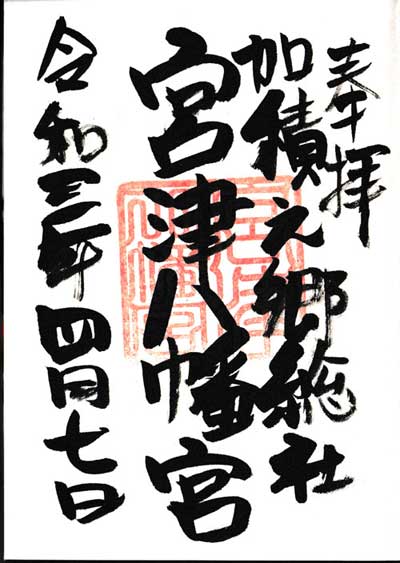 奉拝
加積之郷総社
宮津八幡宮
令和三年四月七日